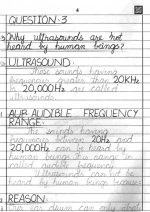 QUESTION: 3
Why ultrasounds are not
heard by human beings?
ULTRASOUND:
These sounds having
frequencies greater than 20KHz
or 20,000Hz are called
ultrasounds.
AUDIBLE FREQUENCY
RANGE:
The sounds having
frequencies between 20Hz and
20,000Hz can be heard by
human beings this range is
called audible frequency
Ultrasounds can not be
heard by human beings because
REASON:
ear drum can only